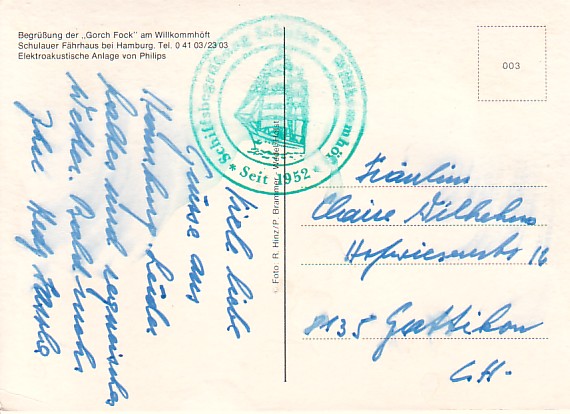 Begrüßung der „Gorch Fock" am Willkommhöft
Schulauer Fährhaus bei Hamburg. Tel. 0 41 03/23 03
Elektroakustische Anlage von Philips
Schiffsbegrüssung Schulau - Willkommhöft
* Seit 1952 *
003
Foto: R. Hinz/P. Brammer, Wedel/Holst.
Viele liebe
Grüsse aus
Hamburg. Leider
kaltes und regnerisches
Wetter. Bald mehr
Ihre
Fräulein
Claire Wilhelm
Hofwiesenstr. 16
8135 Gattikon
CH.